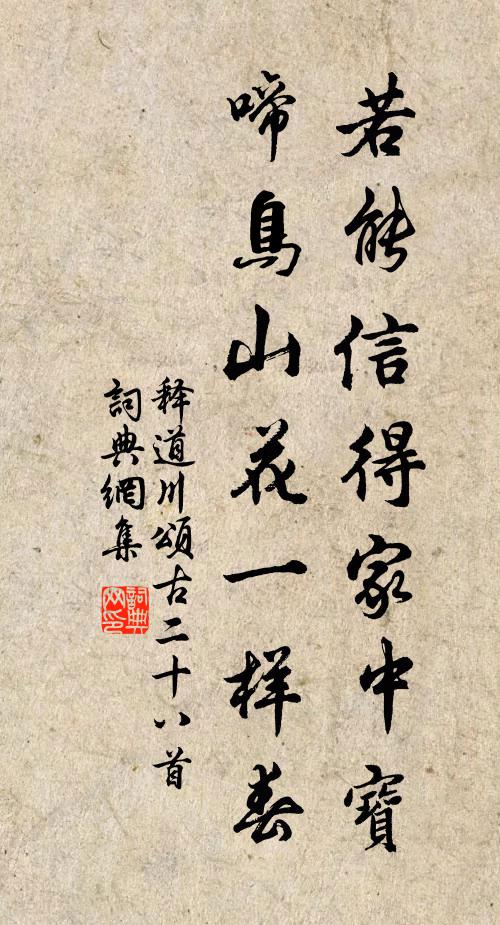 若能信得家中寶
啼鳥山花一样春
释道川頌古二十八首
詞典網集
詞典网印